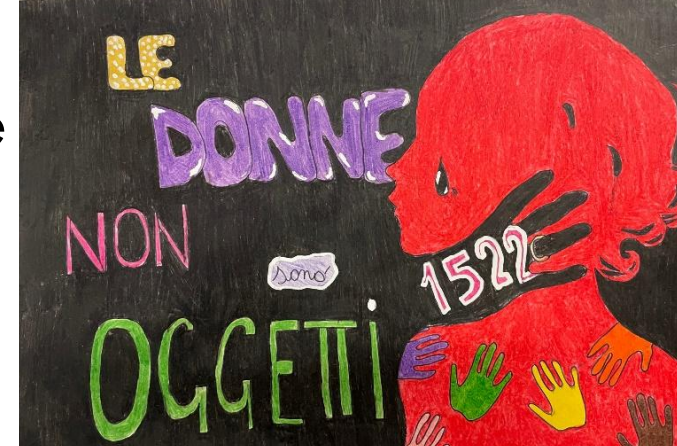 LE
DONNE
NON
sono
OGGETTi
1522